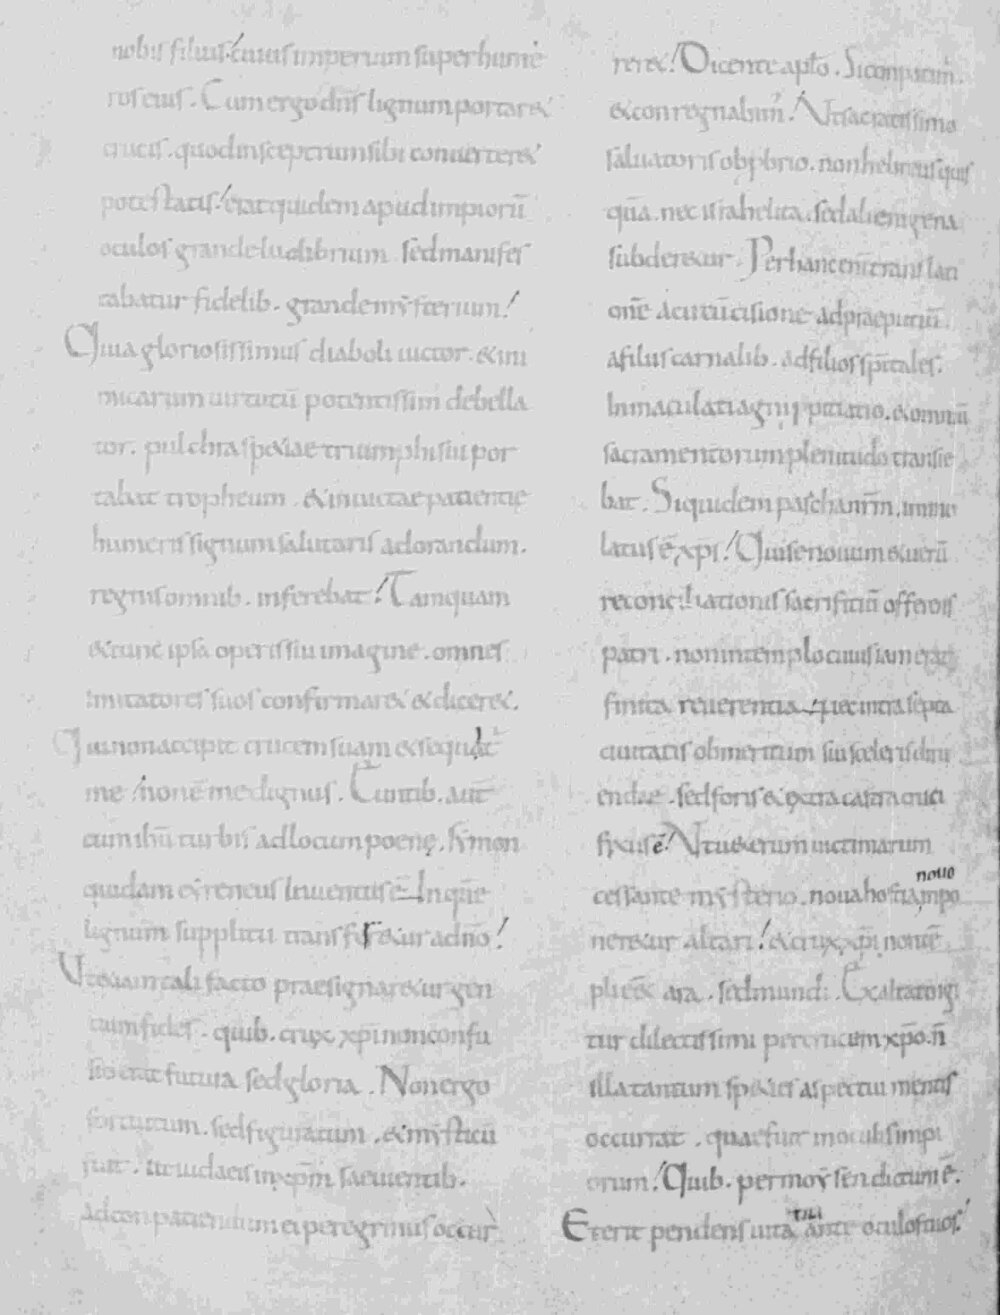 nobis filius. cuius imperium super hume
ros eius. Cum ergo dns lignum portaret
crucis. quod in sceptrum sibi converteret
potestatis. erat quidem apud impiorū
oculos grande ludibrium. sed manifes
tabatur fidelib. grande mysterium.
Quia gloriosissimus diaboli uictor. & ini
micarum uirtutū potentissim debella
tor. pulchra specie triumphi sui por
tabat tropheum. & inuictae patientie
humeris signum salutaris adorandum.
regnis omnib. inferebat. Tamquam
& tunc ipsa operis sui imagine. omnes
imitatores suos confirmar& & dicer&.
Qui non accipit crucem suam & sequit
me. non ē me dignus. Euntib. aūt
cum ihū turbis ad locum poenę. symon
quidam cyreneus inuentus ē. In quē
lignum supplicii transferr&ur a dno.
Ut etiam tali facto praesignar&ur gen
tium fides. quib. crux xpi non confu
sio erat futura sed gloria. Non ergo
fortuitum. sed figuratum. & mysticū
fuit. ut iudaeis in xpm saeuientib.
ad conpatiendum ei peregrinus occurr
rer&. Dicente aplo. Si conpatim.
& conregnabim. Ut sacratissimo
saluatoris obpbrio. non hebreus quis
quā. nec israhelita. sed alienigena
subder&ur. Per hanc enī transla
onē a circūcisione ad praeputiū.
a filiis carnalib. ad filios spitales.
Inmaculati agni ppitiatio. & omniū
sacramentorum plenitudo transie
bat. Siquidem pascha nrm. immo
latus ē xps. Qui se nouum & uerū
reconciliationis sacrificiū offerens
patri. non in templo cuius iam erat
finita reuerentia nec intra septa
ciuitatis ob meritum sui sceleris diru
endae. sed foris & extra castra cruci
fixus ē. Ut ueterum uictimarum
cessante mysterio. noua hostia inpo
nouo
ner&ur altari. & crux xpi non tē
pli & ara. sed mundi. Exaltato igi
tur dilectissimi per crucem xpo. ñ
illa tantum species aspectui mentis
occurrat. quae fuit in oculis impi
orum. Quib. per moysen dictum ē.
Et erit pendens uita tua ante oculos tuos.